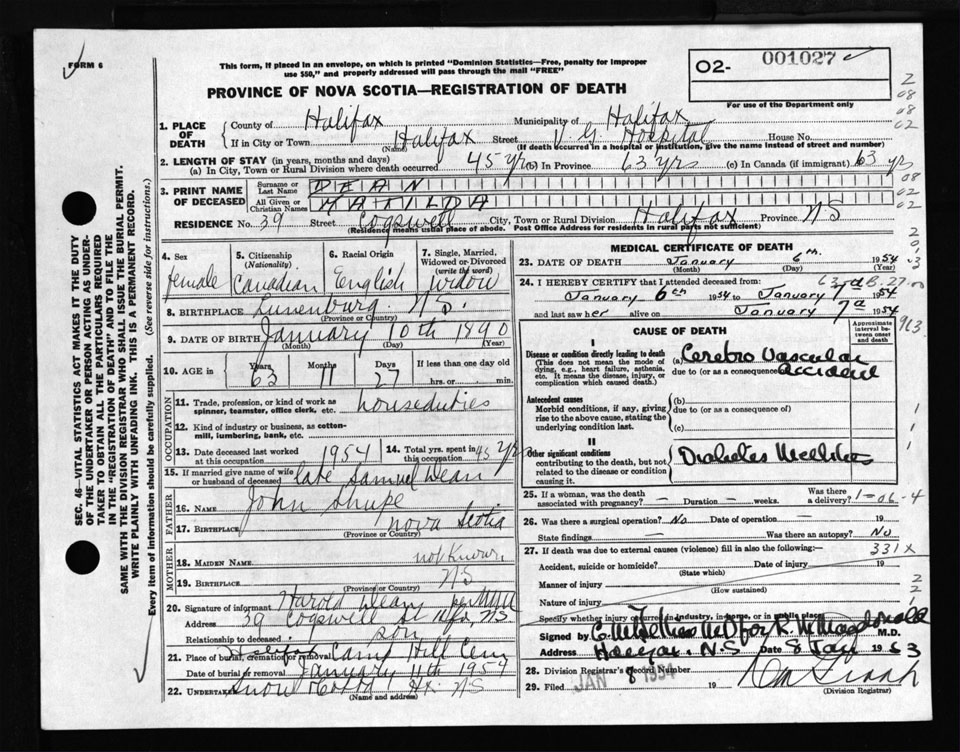 FORM 6
This form, if placed in an envelope, on which is printed "Dominion Statistics—Free, penalty for improper
use $50," and properly addressed will pass through the mail "FREE"
PROVINCE OF NOVA SCOTIA—REGISTRATION OF DEATH
O2- 001027
For use of the Department only
2
08
08
02
1. PLACE OF DEATH
County of Halifax Municipality of Halifax
If in City or Town Halifax Street V. G. Hospital House No.
(Name) (If death occurred in a hospital or institution, give the name instead of street and number)
2. LENGTH OF STAY (in years, months and days)
(a) In City, Town or Rural Division where death occurred 45 yrs (b) In Province 63 yrs (c) In Canada (if immigrant) 63 yrs
3. PRINT NAME OF DECEASED
Surname or Last Name DEAN
All Given or Christian Names MATILDA
08
02
02
RESIDENCE No. 39 Street Cogswell City, Town or Rural Division Halifax Province NS
(Residence means usual place of abode. Post Office Address for residents in rural parts not sufficient)
4. Sex
female
5. Citizenship
(Nationality)
Canadian
6. Racial Origin
English
7. Single, Married,
Widowed or Divorced
(write the word)
widow
8. BIRTHPLACE Lunenburg. N.S.
(Province or Country)
9. DATE OF BIRTH January 10th 1890
(Month) (Day) (Year)
10. AGE in
Years 63
Months 11
Days 27
If less than one day old
hrs. or min.
OCCUPATION
11. Trade, profession, or kind of work as
spinner, teamster, office clerk, etc. houseduties
12. Kind of industry or business, as cotton-
mill, lumbering, bank, etc.
13. Date deceased last worked
at this occupation 1954
14. Total yrs. spent in
this occupation 45 yrs
15. If married give name of wife
or husband of deceased late Samuel Dean
FATHER
16. Name John Shupe
17. Birthplace Nova Scotia
(Province or Country)
MOTHER
18. Maiden Name not known.
19. Birthplace NS
(Province or Country)
20. Signature of informant Harold Dean per
Address 39 Cogswell St Hfx, NS
Relationship to deceased son
21. Place of burial, cremation or removal Halifax Camp Hill Cem
Date of burial or removal January 11th 1954
22. Undertaker Snow & Co Ltd Hx. NS
(Name and address)
MEDICAL CERTIFICATE OF DEATH
23. DATE OF DEATH January 6th. 1954
(Month) (Day) (Year)
24. I HEREBY CERTIFY that I attended deceased from:
January 6th 1954 to January 7th 1954
and last saw her alive on January 7th 1954
CAUSE OF DEATH
Approximate
interval be-
tween onset
and death
I
Disease or condition directly leading to death
(This does not mean the mode of
dying, e.g., heart failure, asthenia,
etc. It means the disease, injury, or
complication which caused death.)
(a) Cerebro Vascular
due to (or as a consequence of) accident
Antecedent causes
Morbid conditions, if any, giving
rise to the above cause, stating the
underlying condition last.
(b)
due to (or as a consequence of)
(c)
II
Other significant conditions
contributing to the death, but not
related to the disease or condition
causing it.
Diabetes Mellitus
25. If a woman, was the death
associated with pregnancy? – Duration – weeks. Was there
a delivery? 1-06-4
26. Was there a surgical operation? No Date of operation — 19
State findings — Was there an autopsy? No
27. If death was due to external causes (violence) fill in also the following:— 331X
Accident, suicide or homicide? Date of injury 19
(State which)
Manner of injury
(How sustained)
Nature of injury
Specify whether injury occurred in industry, in home, or in public place
Signed by for R. M. Macdonald M.D.
Halifax. N.S Date 8 Jan 1953
28. Division Registrar's Record Number
29. Filed JAN 8 1954 19
(Division Registrar)
SEC. 46—VITAL STATISTICS ACT MAKES IT THE DUTY
OF THE UNDERTAKER OR PERSON ACTING AS UNDER-
TAKER TO OBTAIN ALL THE PARTICULARS REQUIRED
IN THE "REGISTRATION OF DEATH" AND TO FILE THE
SAME WITH THE DIVISION REGISTRAR WHO SHALL ISSUE THE BURIAL PERMIT.
WRITE PLAINLY WITH UNFADING INK. THIS IS A PERMANENT RECORD.
Every item of information should be carefully supplied. (See reverse side for instructions.)